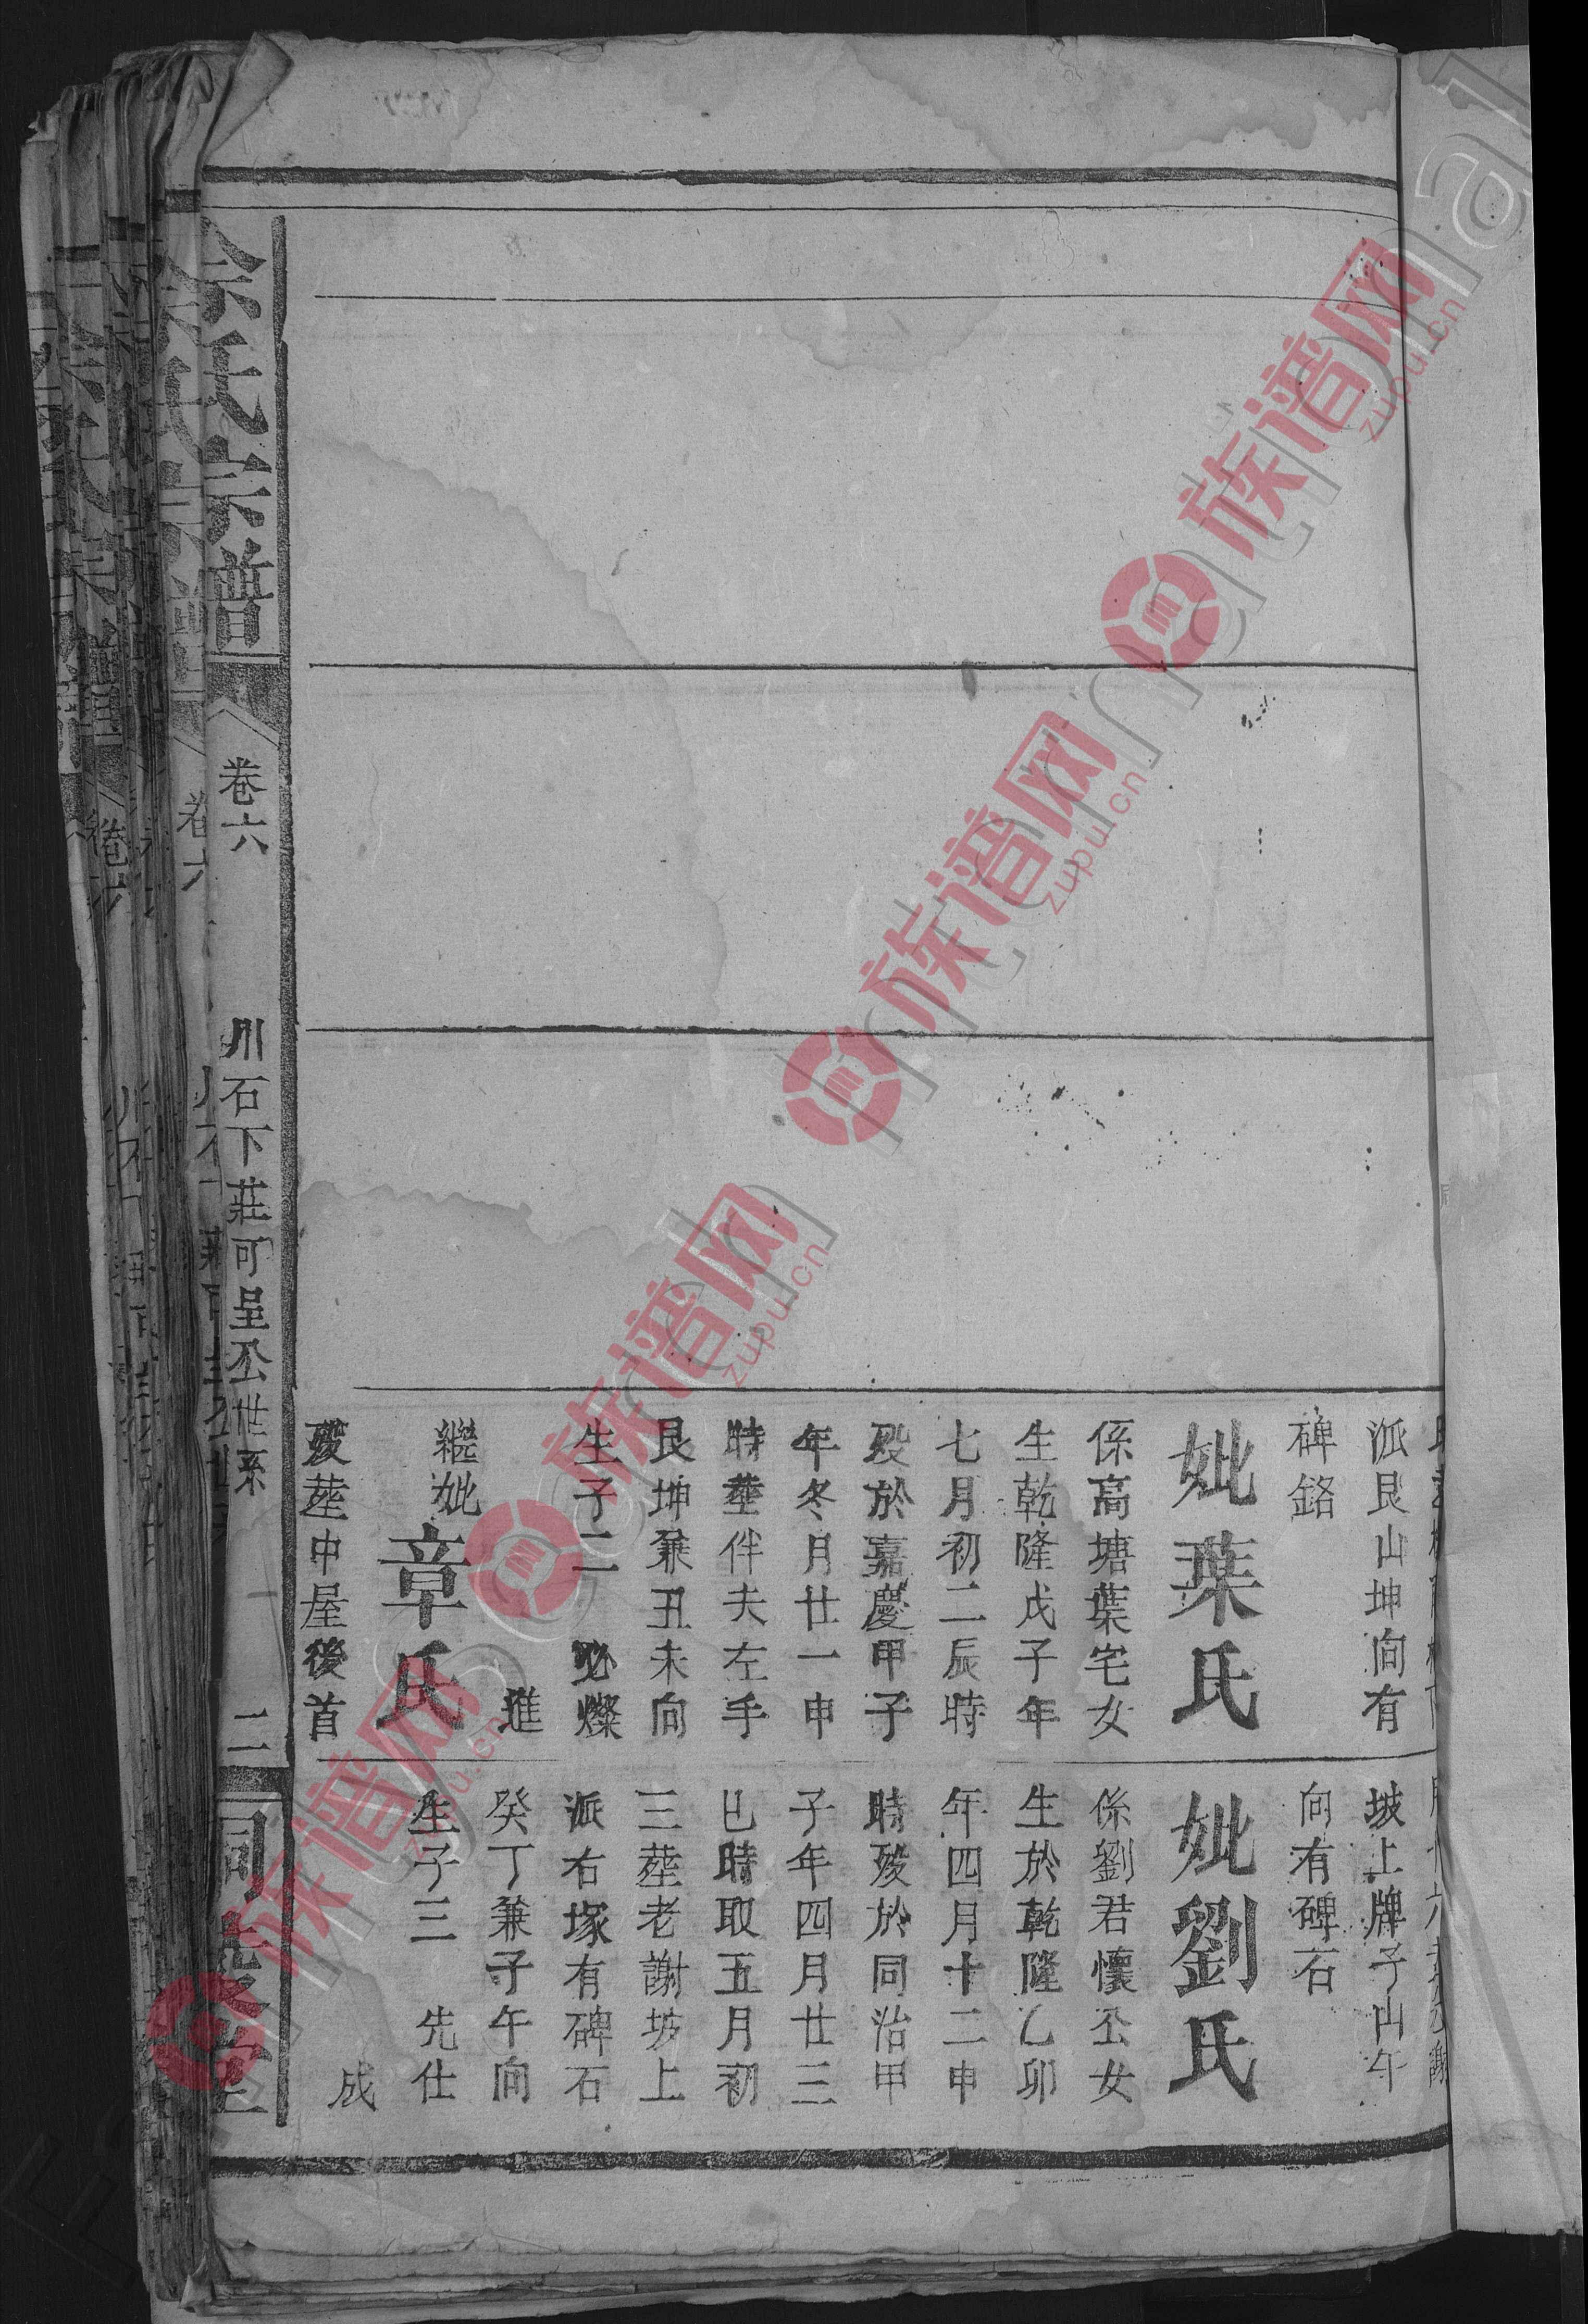 派艮山坤向有
碑銘
妣葉氏
係高塘葉宅女
生乾隆戊子年
七月初二辰時
歿於嘉慶甲子
年冬月廿一申
時塟伴夫左手
艮坤兼丑未向
生子二 必燦
進
繼妣章氏
歿塟中屋後首
坡上牌子山午
向有碑石
妣劉氏
係劉君懷公女
生於乾隆乙卯
年四月十二申
時歿於同治甲
子年四月廿三
巳時取五月初
三塟老謝坡上
派右塚有碑石
癸丁兼子午向
生子三 先仕
成
余氏宗譜
卷六
川石下莊可呈公世系
二
族谱网
zupu.cn
族谱网
zupu.cn
族谱网
zupu.cn
族谱网
zupu.cn